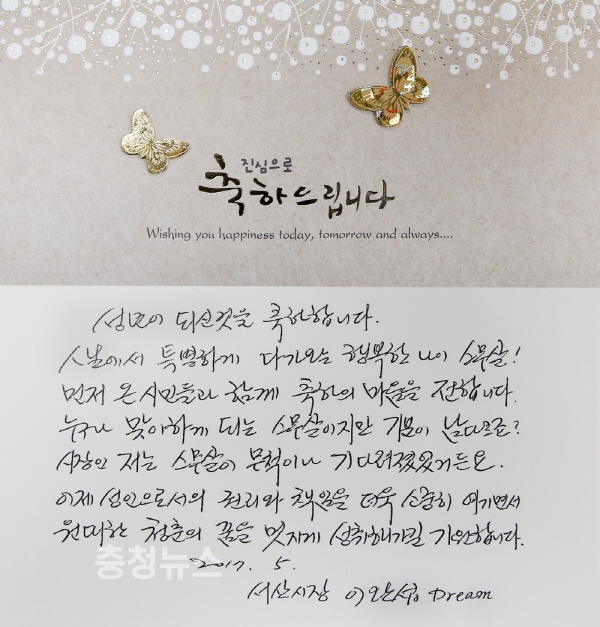 진심으로
축하드립니다
Wishing you happiness today, tomorrow and always....
성년이 되신것을 축하합니다.
스무날에서 특별하게 다가오는 행복한 나이 스무살!
먼저 온 시민들과 함께 축하의 마음을 전합니다.
누구나 맞이하게 되는 스무살이지만 기분이 남다르죠?
시장인 저는 스무살이 무척이나 기다려졌었거든요.
이제 성인으로서의 권리와 책임을 더욱 소중히 여기면서
원대한 청춘의 꿈을 멋지게 성취해가길 기원합니다.
충청뉴스
2017. 5.
서산시장 이완섭 Dream